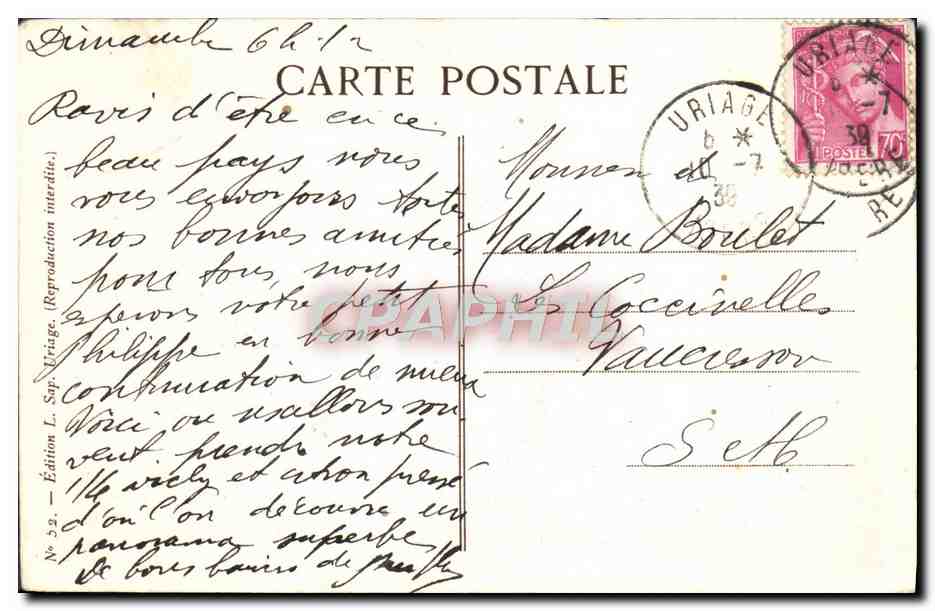 Dimanche 6h 1/2
CARTE POSTALE
Ravis d'être en ce
beau pays nous
vous envoyons toutes
nos bonnes amitiés
pour tous nous
esperons votre petit
Philippe en bonne
continuation de mieux
Voici ou nous allons sou
vent prendre notre
1/4 vichy et citron pressé
d'où l'on découvre un
panorama superbe
de bons baisers de
N° 52. — Édition L. Sap. Uriage. (Reproduction interdite.)
URIAGE
-7
39
URIAGE
-7
39
ISERE
POSTES
70c
Monsieur et
Madame Boulet
Les Coccinelles
Vaucresson
S et M
CPAPHIL